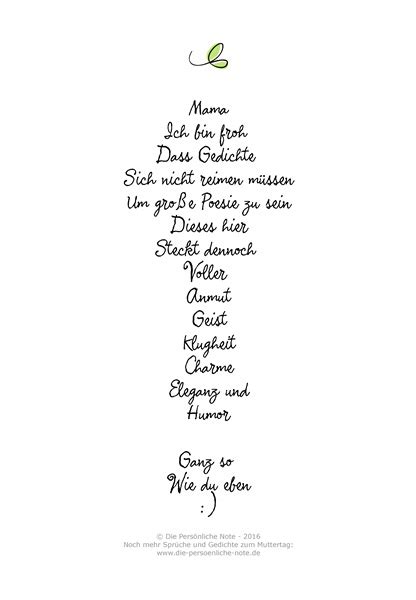 Mama
Ich bin froh
Dass Gedichte
Sich nicht reimen müssen
Um große Poesie zu sein
Dieses hier
Steckt dennoch
Voller
Anmut
Geist
Klugheit
Charme
Eleganz und
Humor
Ganz so
Wie du eben
:)
© Die Persönliche Note - 2016
Noch mehr Sprüche und Gedichte zum Muttertag:
www.die-persoenliche-note.de